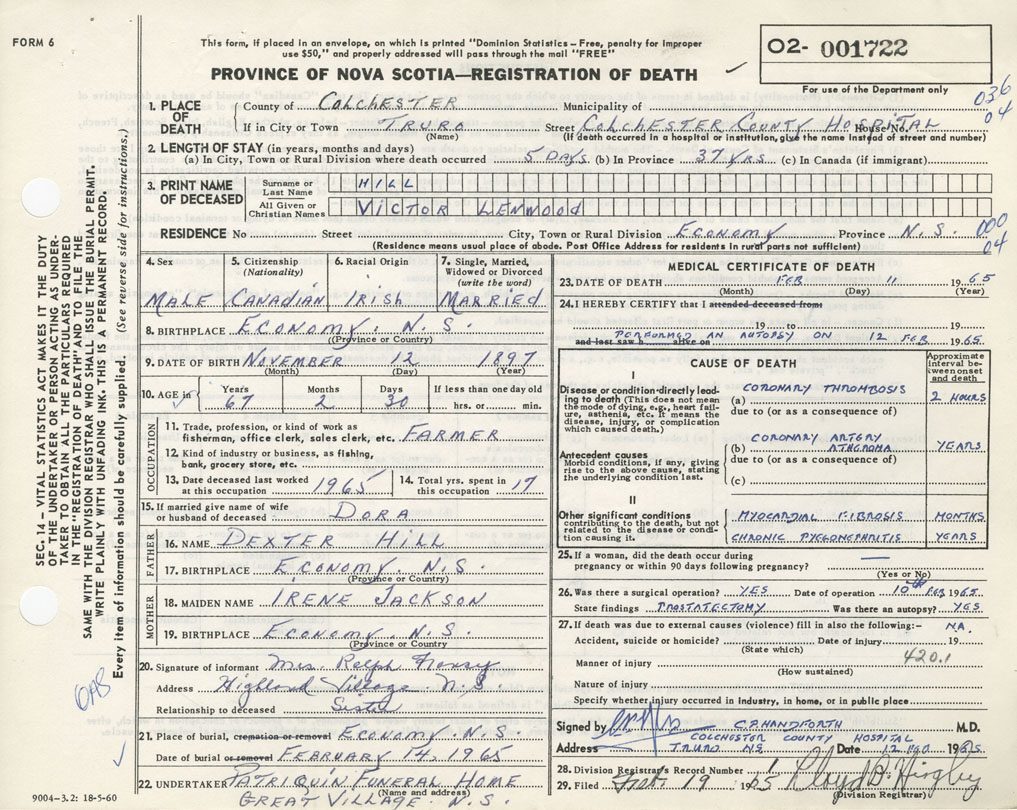 FORM 6
This form, if placed in an envelope, on which is printed "Dominion Statistics – Free, penalty for improper
use $50," and properly addressed will pass through the mail "FREE"
O2- 001722
PROVINCE OF NOVA SCOTIA—REGISTRATION OF DEATH
For use of the Department only
036
04
1. PLACE OF DEATH
County of COLCHESTER Municipality of
If in City or Town TRURO Street COLCHESTER COUNTY HOSPITAL House No.
(Name) (If death occurred in a hospital or institution, give the name instead of street and number)
2. LENGTH OF STAY (in years, months and days)
(a) In City, Town or Rural Division where death occurred 5 DAYS (b) In Province 37 YRS (c) In Canada (if immigrant)
3. PRINT NAME OF DECEASED
Surname or Last Name HILL
All Given or Christian Names VICTOR LENWOOD
RESIDENCE No Street City, Town or Rural Division ECONOMY Province N.S.
000
04
(Residence means usual place of abode. Post Office Address for residents in rural parts not sufficient)
4. Sex 5. Citizenship (Nationality) 6. Racial Origin 7. Single, Married, Widowed or Divorced (write the word)
MALE CANADIAN IRISH MARRIED
8. BIRTHPLACE ECONOMY. N.S.
(Province or Country)
9. DATE OF BIRTH NOVEMBER 12 1897
(Month) (Day) (Year)
10. AGE in Years 67 Months 2 Days 30 If less than one day old hrs. or min.
OCCUPATION
11. Trade, profession, or kind of work as
fisherman, office clerk, sales clerk, etc. FARMER
12. Kind of industry or business, as fishing,
bank, grocery store, etc.
13. Date deceased last worked at this occupation 1965
14. Total yrs. spent in this occupation 17
15. If married give name of wife
or husband of deceased DORA
FATHER
16. NAME DEXTER HILL
17. BIRTHPLACE ECONOMY. N.S.
(Province or Country)
MOTHER
18. MAIDEN NAME IRENE JACKSON
19. BIRTHPLACE ECONOMY. N.S.
(Province or Country)
20. Signature of informant Mrs Ralph
Address Highland Village N.S.
Relationship to deceased Sister
21. Place of burial, cremation or removal ECONOMY. N.S.
Date of burial or removal FEBRUARY 14, 1965
22. UNDERTAKER PATRIQUIN FUNERAL HOME
(Name and address)
GREAT VILLAGE. N.S.
MEDICAL CERTIFICATE OF DEATH
23. DATE OF DEATH FEB 11 1965
(Month) (Day) (Year)
24. I HEREBY CERTIFY that I attended deceased from
19 to 19
PERFORMED AN AUTOPSY ON 12 FEB 1965
and last saw h alive on
CAUSE OF DEATH
Approximate interval between onset and death
I
Disease or condition directly leading to death (This does not mean the mode of dying, e.g., heart failure, asthenia, etc. It means the disease, injury, or complication which caused death.)
(a) CORONARY THROMBOSIS 2 HOURS
due to (or as a consequence of)
Antecedent causes
Morbid conditions, if any, giving rise to the above cause, stating the underlying condition last.
(b) CORONARY ARTERY ATHEROMA YEARS
due to (or as a consequence of)
(c)
II
Other significant conditions
contributing to the death, but not related to the disease or condition causing it.
MYOCARDIAL FIBROSIS MONTHS
CHRONIC PYELONEPHRITIS YEARS
25. If a woman, did the death occur during
pregnancy or within 90 days following pregnancy? —
(Yes or No)
26. Was there a surgical operation? YES Date of operation 10th FEB 1965
State findings PROSTATECTOMY Was there an autopsy? YES
27. If death was due to external causes (violence) fill in also the following:- NA.
Accident, suicide or homicide? Date of injury 19
(State which)
420.1
Manner of injury
(How sustained)
Nature of injury
Specify whether injury occurred in industry, in home, or in public place
Signed by C.P. HANDFORTH M.D.
COLCHESTER COUNTY HOSPITAL
Address TRURO NS Date 12 FEB 1965
28. Division Registrar's Record Number
29. Filed Feb. 19 1965 Lloyd B. Higby
(Division Registrar)
SEC. 14 – VITAL STATISTICS ACT MAKES IT THE DUTY
OF THE UNDERTAKER OR PERSON ACTING AS UNDER-
TAKER TO OBTAIN ALL THE PARTICULARS REQUIRED
IN THE "REGISTRATION OF DEATH" AND TO FILE THE
SAME WITH THE DIVISION REGISTRAR WHO SHALL ISSUE THE BURIAL PERMIT.
WRITE PLAINLY WITH UNFADING INK. THIS IS A PERMANENT RECORD.
Every item of information should be carefully supplied. (See reverse side for instructions.)
9004-3.2: 18-5-60